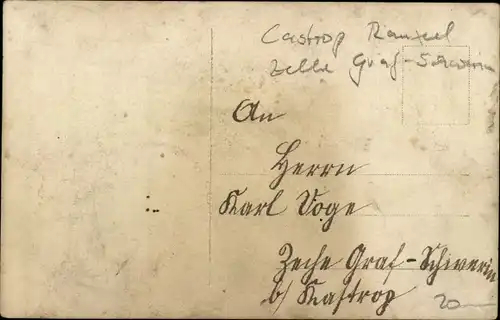 Castrop Rauxel
Zelle Graf-Schwerin
An
Herrn
Karl Voge
Zeche Graf-Schwerin
b/ Kastrop
20